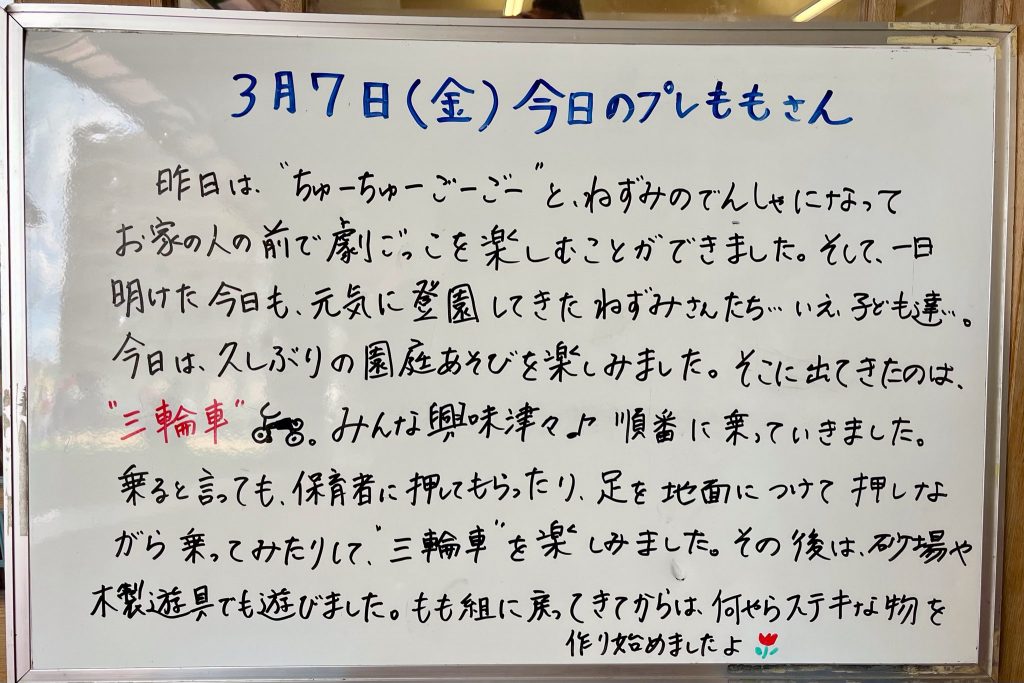 3月7日(金)今日のプレももさん
昨日は、"ちゅーちゅーごーごー"と、ねずみのでんしゃになって
お家の人の前で劇ごっこを楽しむことができました。そして、一日
明けた今日も、元気に登園してきたねずみさんたち…いえ、子ども達…。
今日は、久しぶりの園庭あそびを楽しみました。そこに出てきたのは、
"三輪車"。みんな興味津々♪順番に乗っていきました。
乗ると言っても、保育者に押してもらったり、足を地面につけて押しな
がら乗ってみたりして、"三輪車"を楽しみました。その後は、砂場や
木製遊具でも遊びました。もも組に戻ってきてからは、何やらステキな物を
作り始めましたよ